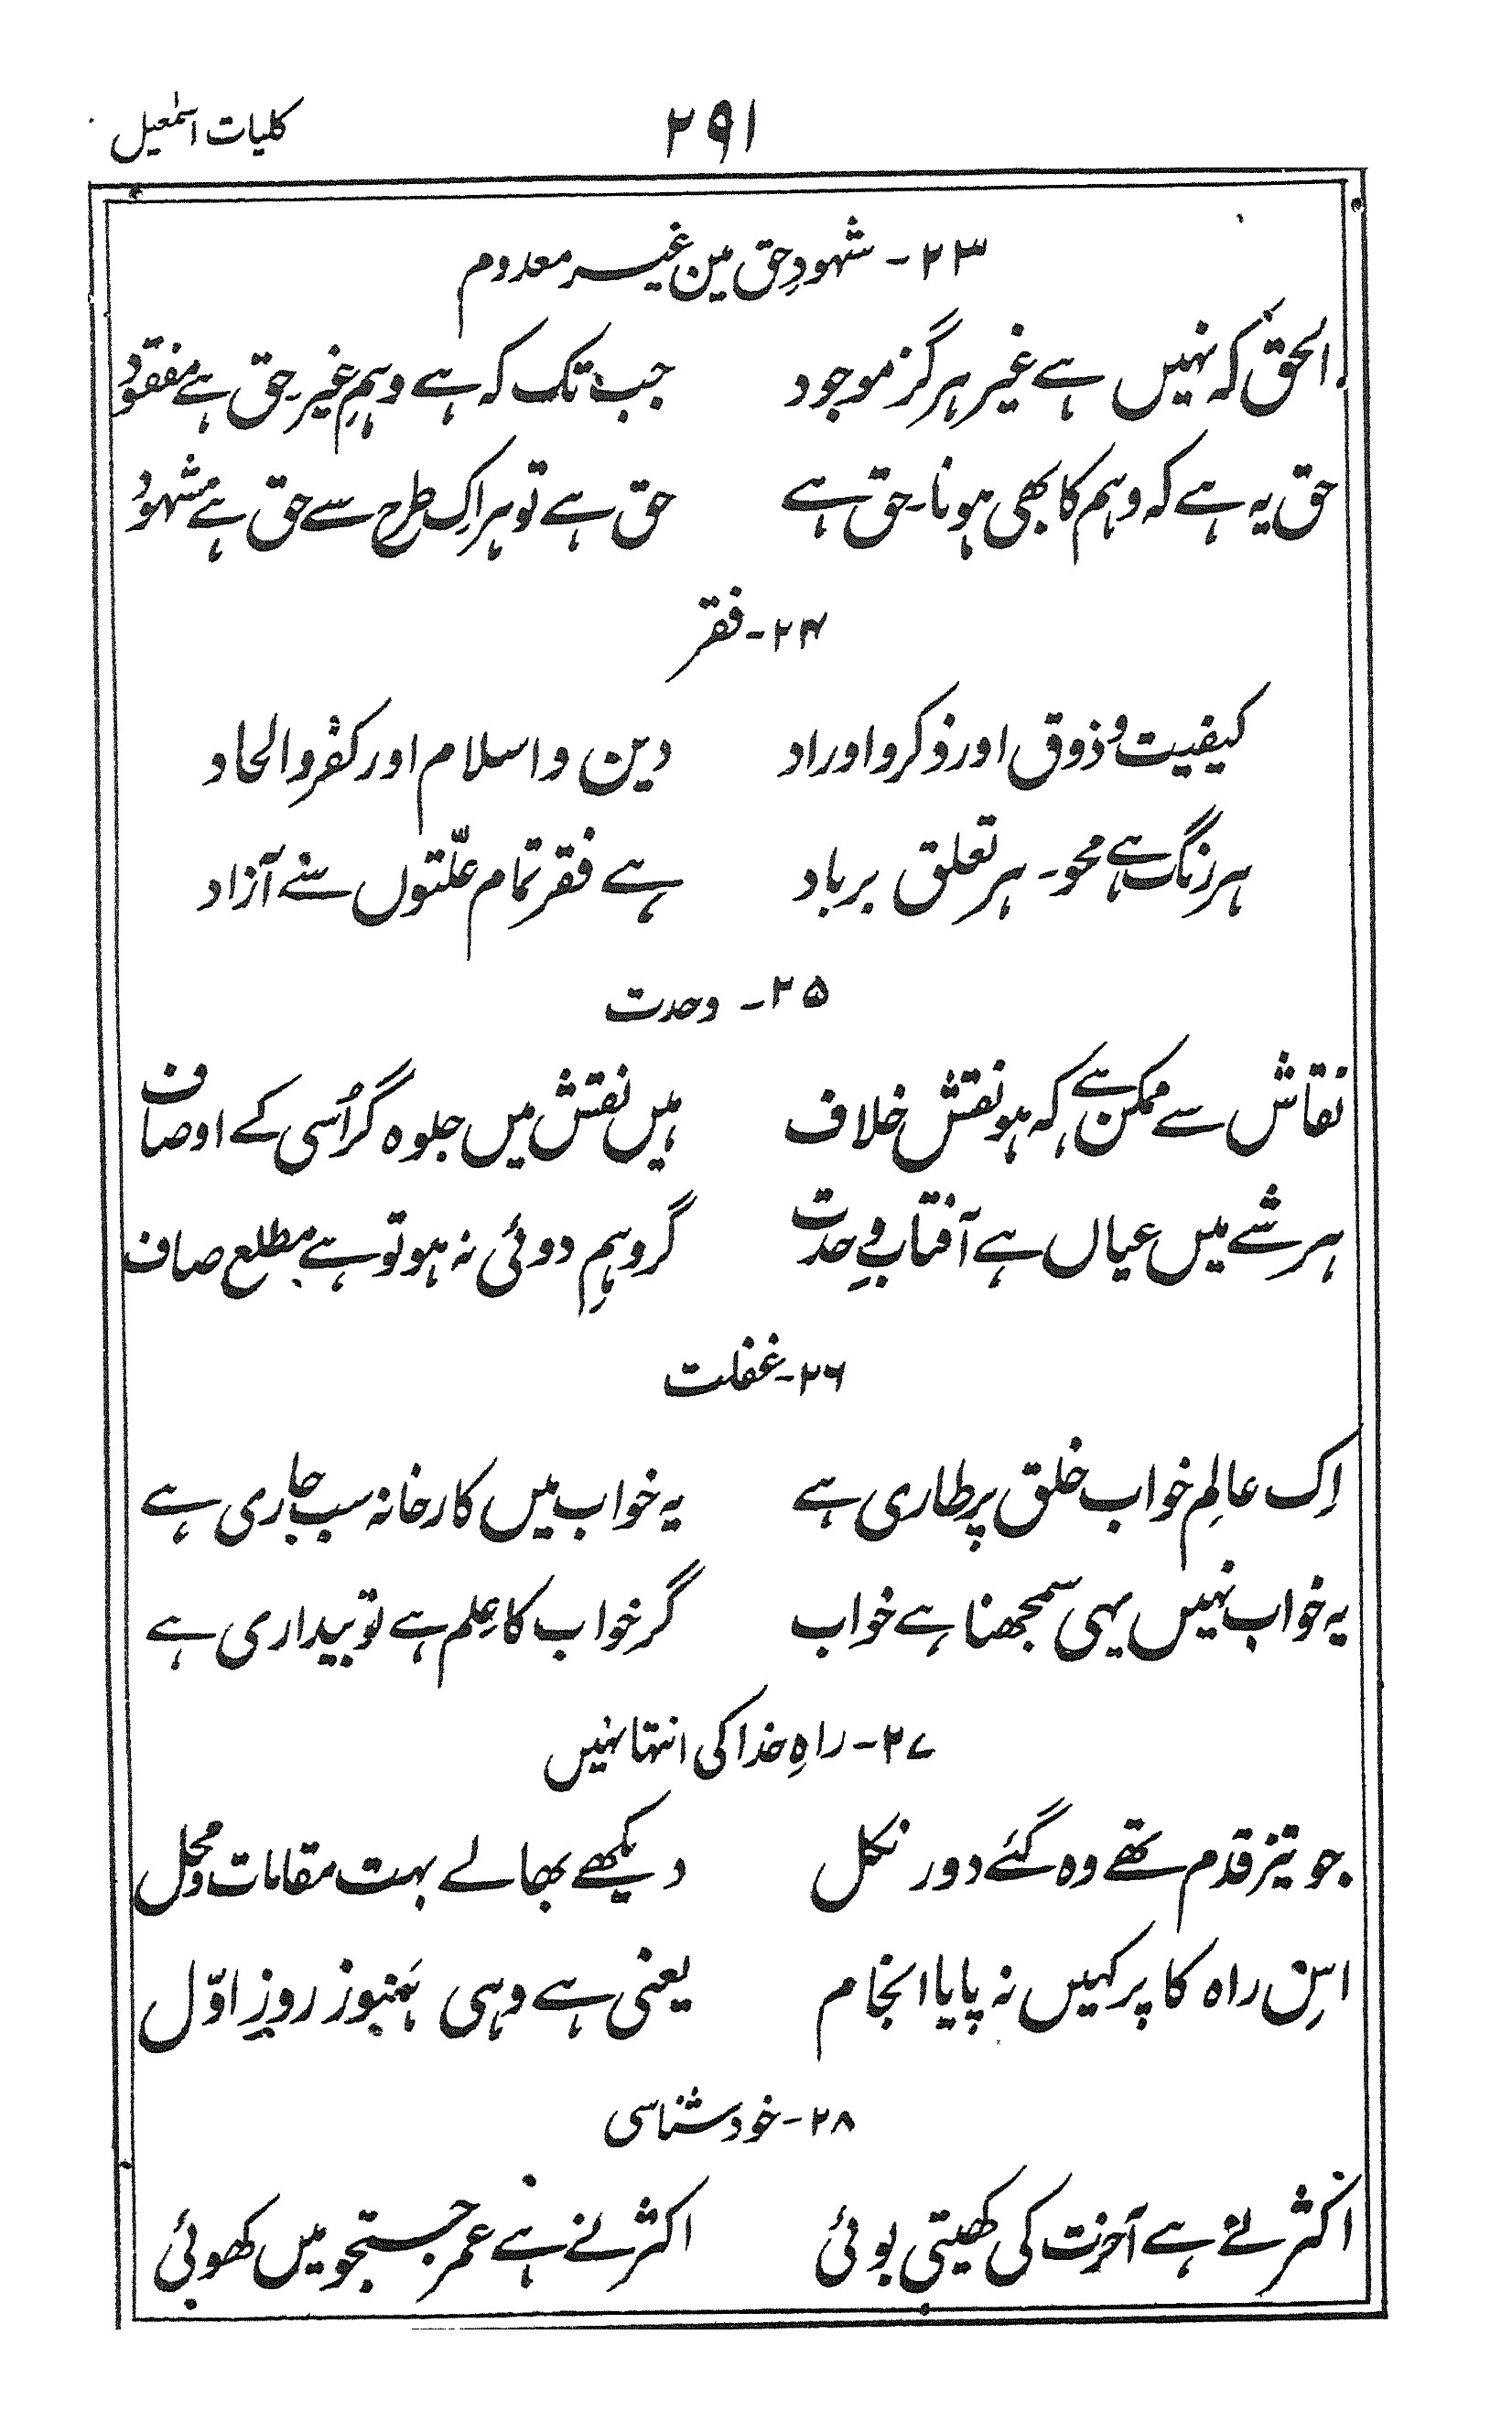 ۲۹۱ کلیات اسمٰعیل
۲۳ - شہودِ حق مین غیر معدوم
الحق کہ نہیں ہے غیر ہرگز موجود جب تک کہ ہے وہمِ غیر - حق ہے مفقود
حق یہ ہے کہ وہم کا بھی ہونا - حق ہے حق ہے تو ہر اک طرح سے حق ہے مشہود
۲۴ - فقر
کیفیت و ذوق اور ذکر و اوراد دین و اسلام اور کفر و الحاد
ہر رنگ ہے محو - ہر تعلق برباد ہے فقر تمام علّتوں سے آزاد
۲۵ - وحدت
نقاش سے ممکن ہے کہ ہو نقش خلاف ہیں نقش میں جلوہ گر اُسی کے اوصاف
ہر شے میں عیاں ہے آفتابِ وحدت گر وہمِ دوئی نہ ہو تو ہے مطلع صاف
۲۶ - غفلت
اِک عالمِ خواب خلق پر طاری ہے یہ خواب میں کارخانہ سب جاری ہے
یہ خواب نہیں یہی سمجھنا ہے خواب گر خواب کا عِلم ہے تو بیداری ہے
۲۷ - راہِ خدا کی انتہا نہیں
جو تیز قدم تھے وہ گئے دور نکل دیکھے بھالے بہت مقامات و محل
اِس راہ کا پر کہیں نہ پایا انجام یعنی ہے وہی ہَنوز روزِ اوّل
۲۸ - خود شناسی
اکثر نے ہے آخرت کی کھیتی بوئی اکثر نے ہے عمر جستجو میں کھوئی